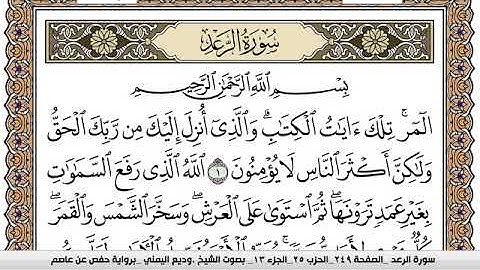 سُورَةُ الرَّعۡدِ
بِسۡمِ ٱللَّهِ ٱلرَّحۡمَٰنِ ٱلرَّحِيمِ
الٓمٓرۚ تِلۡكَ ءَايَٰتُ ٱلۡكِتَٰبِۗ وَٱلَّذِيٓ أُنزِلَ إِلَيۡكَ مِن رَّبِّكَ ٱلۡحَقُّ
وَلَٰكِنَّ أَكۡثَرَ ٱلنَّاسِ لَا يُؤۡمِنُونَ ١ ٱللَّهُ ٱلَّذِي رَفَعَ ٱلسَّمَٰوَٰتِ
بِغَيۡرِ عَمَدٖ تَرَوۡنَهَاۖ ثُمَّ ٱسۡتَوَىٰ عَلَى ٱلۡعَرۡشِۖ وَسَخَّرَ ٱلشَّمۡسَ وَٱلۡقَمَرَۖ
سورة الرعد _الصفحة ٢٤٩_ الحزب ٢٥_ الجزء ١٣_ بصوت الشيخ .وديع اليمني _برواية حفص عن عاصم